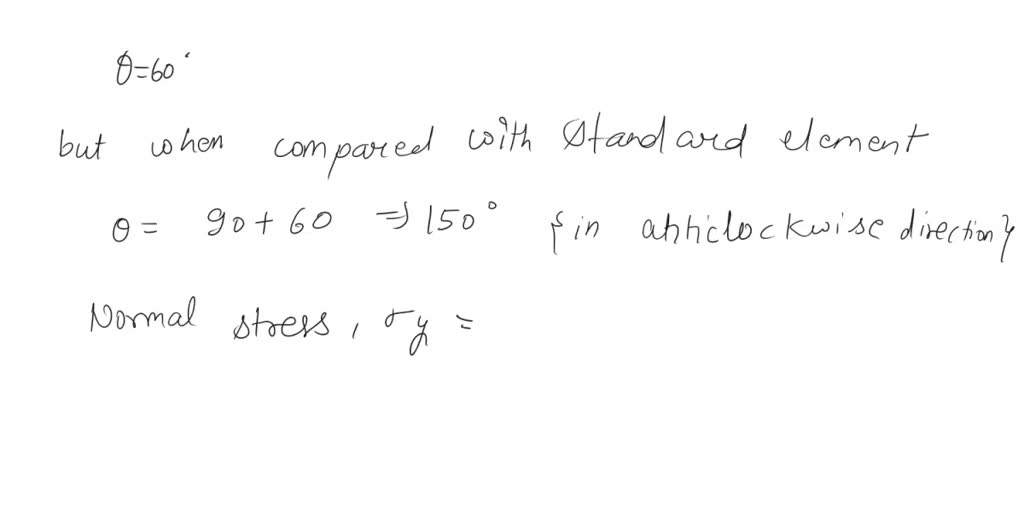 θ=60°
but when compared with standard element
θ = 90+60 ⇒ 150° {in anticlockwise direction}
Normal stress, σy =